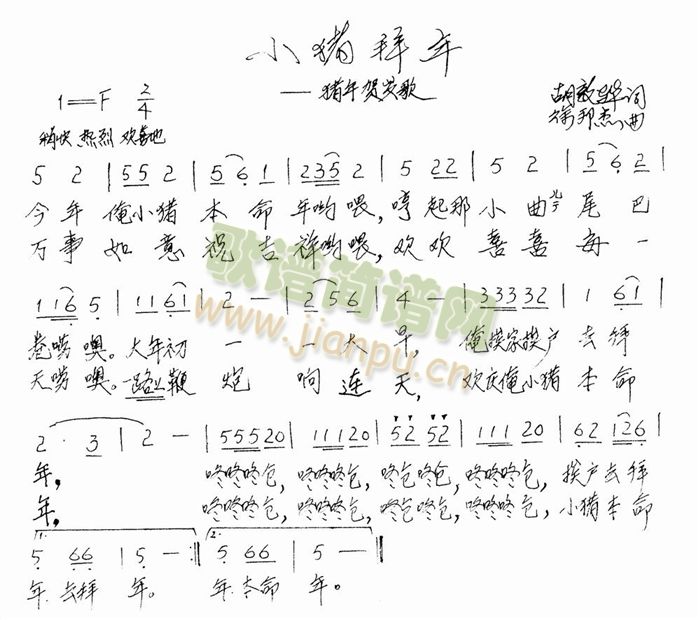 小猪拜年
——猪年贺岁歌
1=F 2/4
胡敬华词
徐邦杰曲
畅快 热烈 欢喜地
5 2 | 55 2 | 5 6 1 | 235 2 | 5 22 | 5 2 | 5 6 2 |
今年 俺小猪 本命 年哟喂,哼起那 小曲儿 尾巴
万事 如意 祝吉 祥哟喂,欢欢 喜喜 每一
116 5 | 11 61 | 2 — | 2 56 | 4 — | 33332 | 1 61 |
卷唠噢。大年初 一 一大 早, 俺挨家挨户 去拜
天唠噢。一路上鞭 炮 响连 天, 欢庆俺小猪 本命
2 · 3 | 2 — | 55520 | 11120 | 52 52 | 111 20 | 62 126 |
年, 咚咚咚仓,咚咚咚仓,咚仓咚仓,咚咚咚仓,挨户去拜
年, 咚咚咚仓,咚咚咚仓,咚仓咚仓,咚咚咚仓,小猪本命
1. 2.
5 66 | 5 — :‖ 5 66 | 5 — ‖
年.去拜 年。 年.本命 年。
歌谱简谱网
www.jianpu.cn